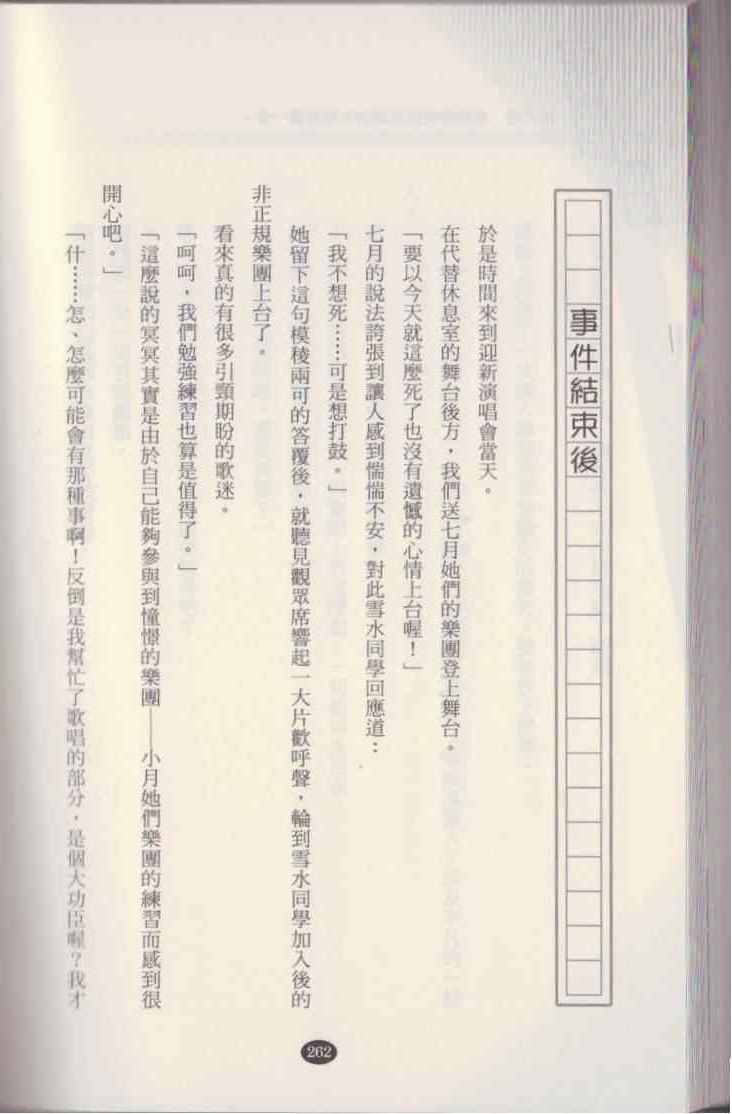 事件結束後
於是時間來到迎新演唱會當天。
在代替休息室的舞台後方，我們送七月她們的樂團登上舞台。
「要以今天就這麼死了也沒有遺憾的心情上台喔！」
七月的說法誇張到讓人感到惴惴不安，對此雪水同學回應道：
「我不想死……可是想打鼓。」
她留下這句模稜兩可的答覆後，就聽見觀眾席響起一大片歡呼聲，輪到雪水同學加入後的
非正規樂團上台了。
看來真的有很多引頸期盼的歌迷。
「呵呵，我們勉強練習也算是值得了。」
「這麼說的冥冥其實是由於自己能夠參與到憧憬的樂團——小月她們樂團的練習而感到很
開心吧。」
「什……怎、怎麼可能會有那種事啊！反倒是我幫忙了歌唱的部分，是個大功臣喔？我才
262